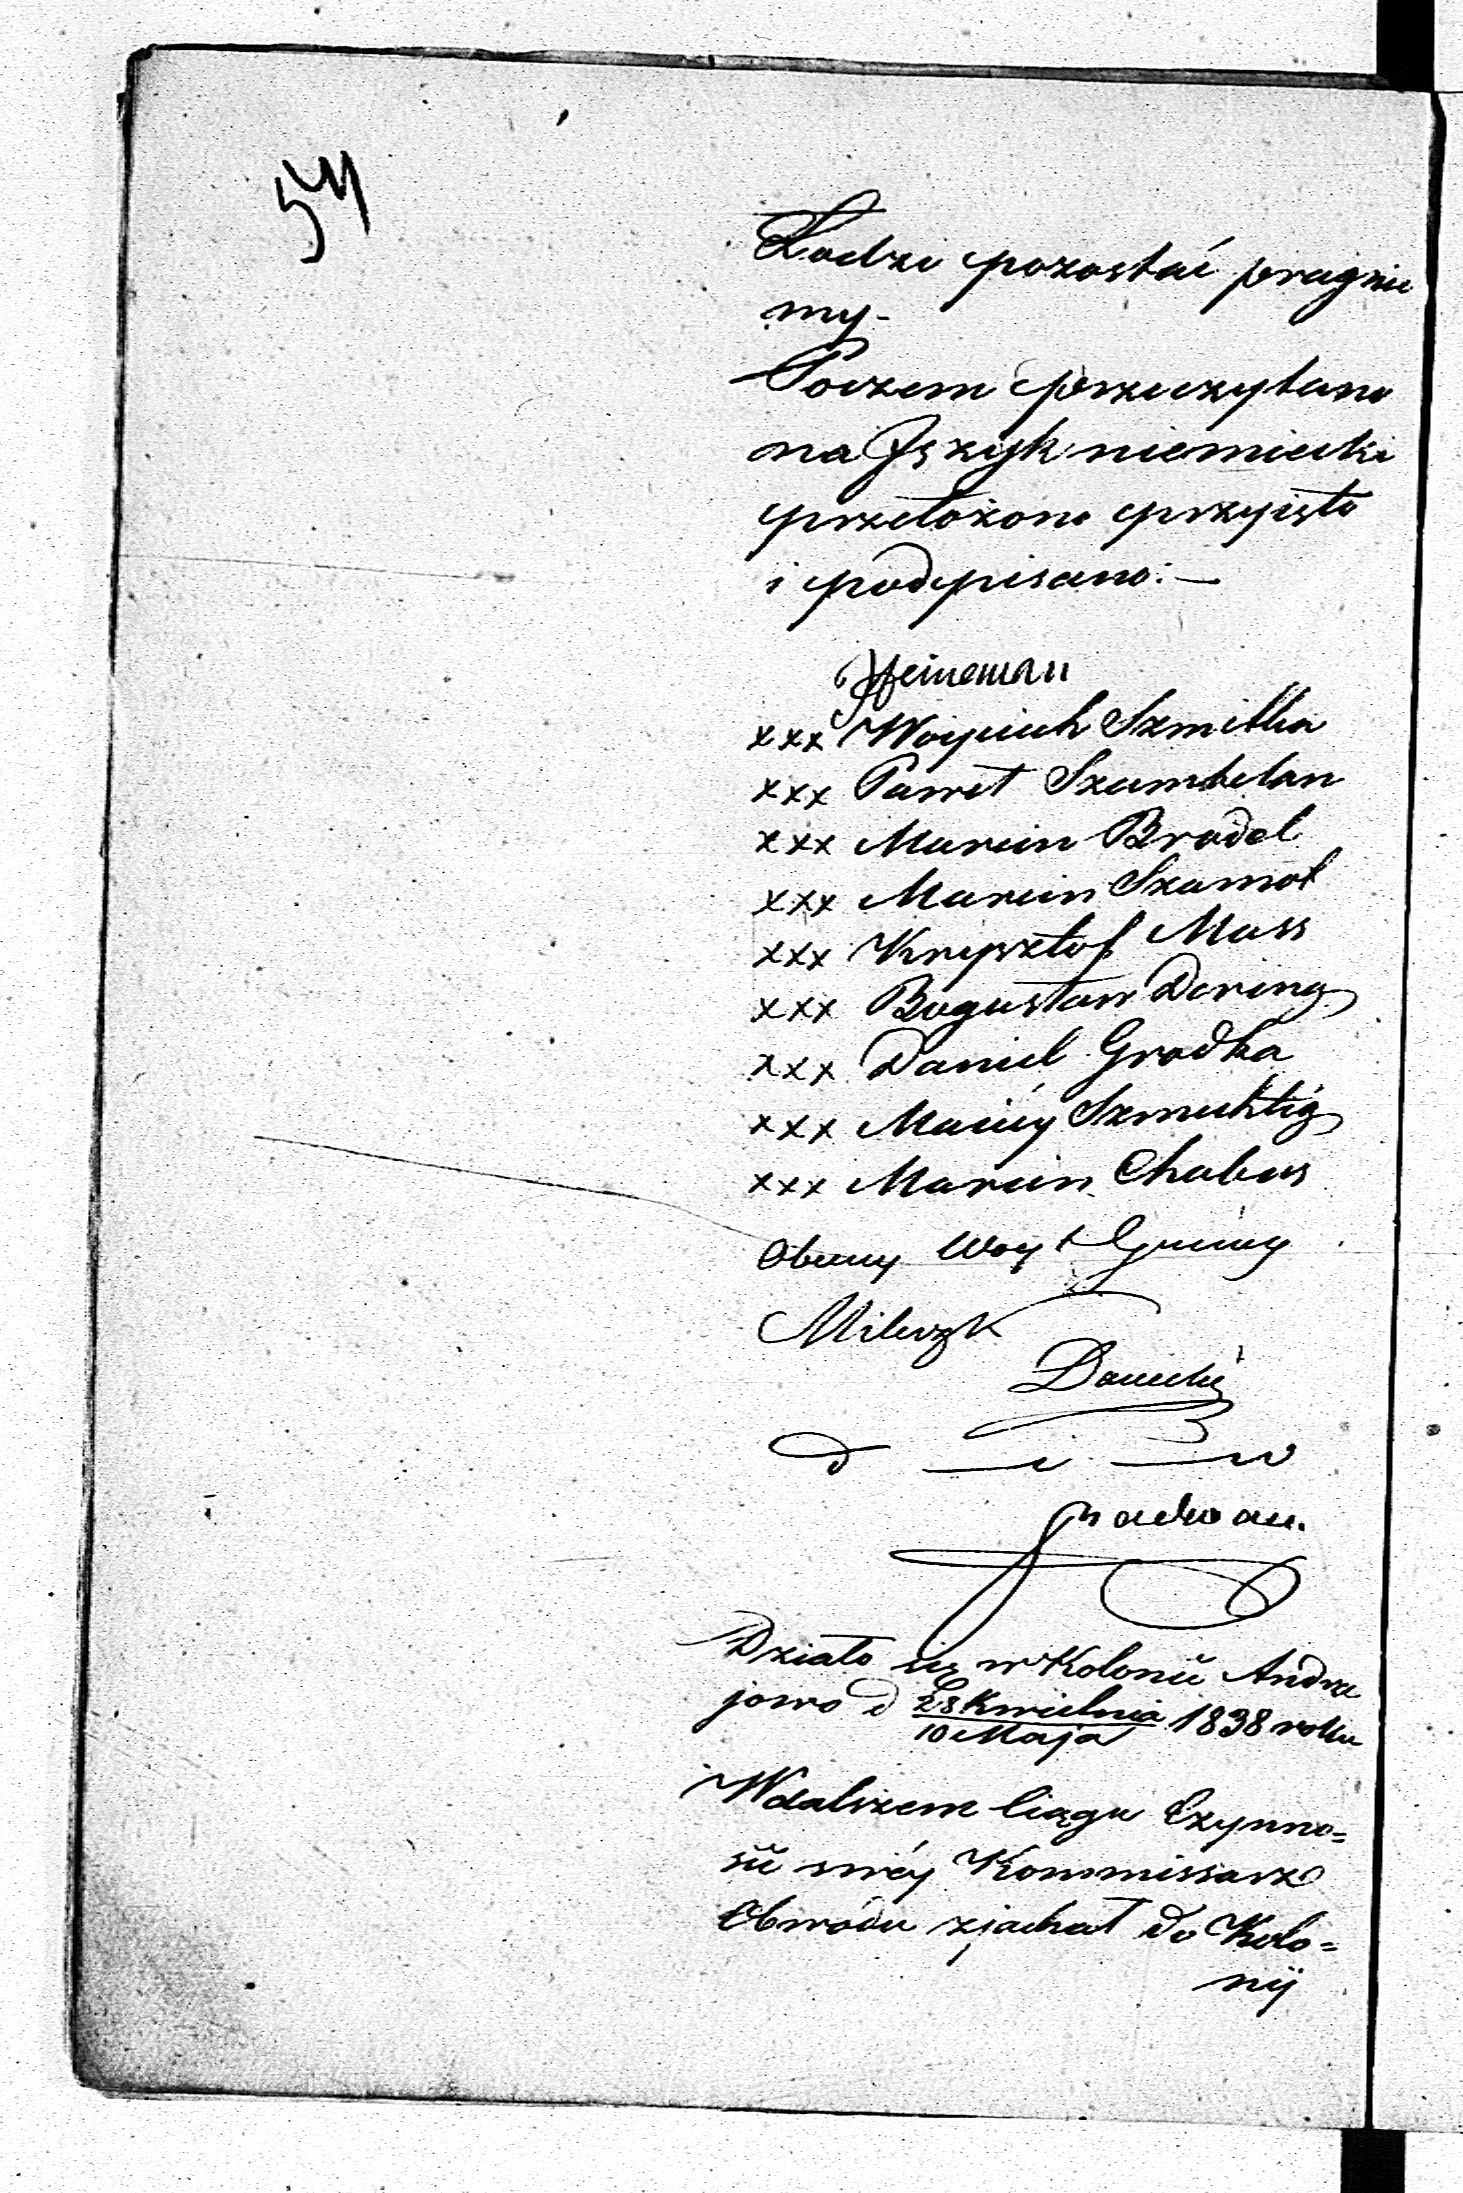 54
Łodzi pozostać pragnie
my.-
Poczem przeczytano
na Język niemiecki
przełożono przyięto
i podpisano:—
Heineman
xxx Woyciech Szmitka
xxx Paweł Szambelan
xxx Marcin Bradel
xxx Marcin Szamot
xxx Krysztof Mass
xxx Bogusław Dering
xxx Daniel Grodka
xxx Maciéy Szmechtig
xxx Marcin Chabus
Obecny Woyt Gminy
Milerzk
Działo się w Kolonii Andrze
jowo d 28 Kwietnia 1838 roku
10 Maja
W dalszem Ciągu Czynno=
ści swéy Kommissarz
Obwodu zjachał do Kolo=
nij